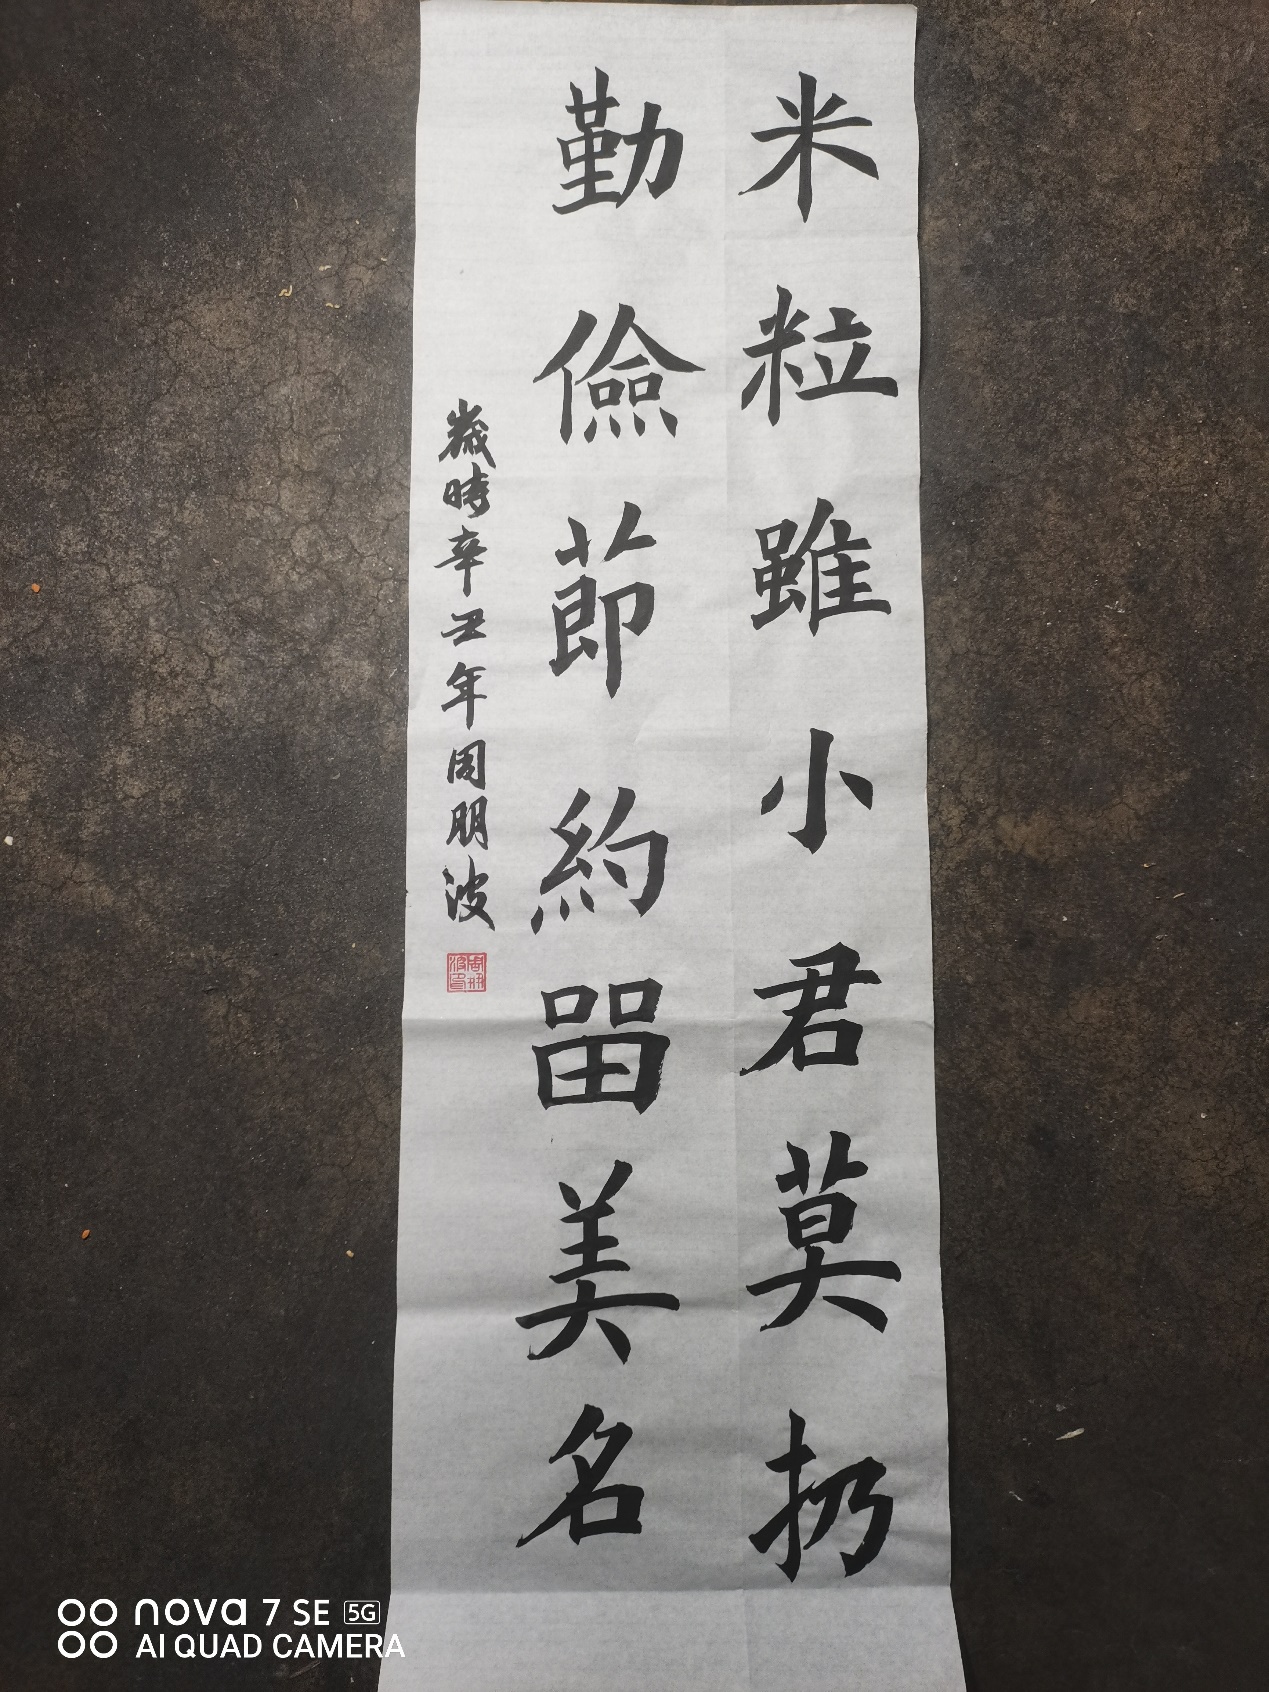 米粒雖小君莫扔
勤儉節約留美名
歲時辛丑年周朋波
nova 7 SE 5G
AI QUAD CAMERA